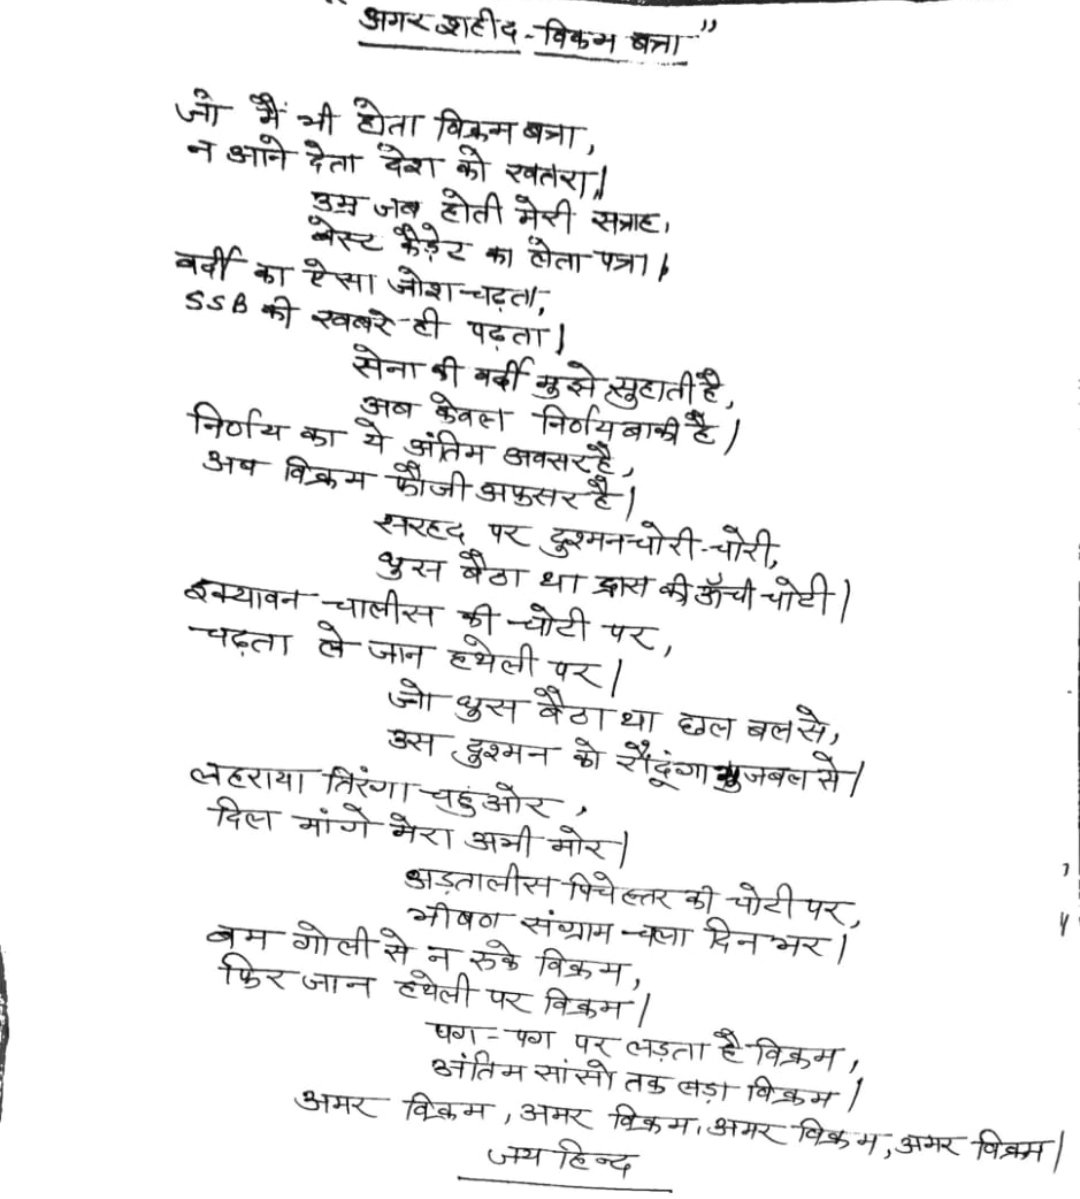 "अमर शहीद - विक्रम बत्रा"
जो मैं भी होता विक्रम बत्रा,
न आने देता देश को खतरा।
उम्र जब होती मेरी सत्राह,
बेस्ट कैड़ेट का होता पत्रा।
वर्दी का ऐसा जोश चढ़ता,
SSB की खबरे ही पढ़ता।
सेना की वर्दी मुझे सुहाती है,
अब केवल निर्णय बाकी है।
निर्णय का ये अंतिम अवसर है,
अब विक्रम फौजी अफसर है।
सरहद पर दुश्मन चोरी-चोरी,
घुस बैठा था द्रास की ऊँची चोटी।
इक्यावन चालीस की चोटी पर,
चढ़ता ले जान हथेली पर।
जो घुस बैठा था छल बल से,
उस दुश्मन को रौंदूंगा भुजबल से।
लहराया तिरंगा चहुं ओर,
दिल मांगे मेरा अभी मोर।
अड़तालीस पिचेहत्तर की चोटी पर,
भीषण संग्राम चला दिन भर।
बम गोली से न रुके विक्रम,
फिर जान हथेली पर विक्रम।
पग-पग पर लड़ता है विक्रम,
अंतिम सांसो तक लड़ा विक्रम।
अमर विक्रम, अमर विक्रम, अमर विक्रम, अमर विक्रम।
जय हिन्द